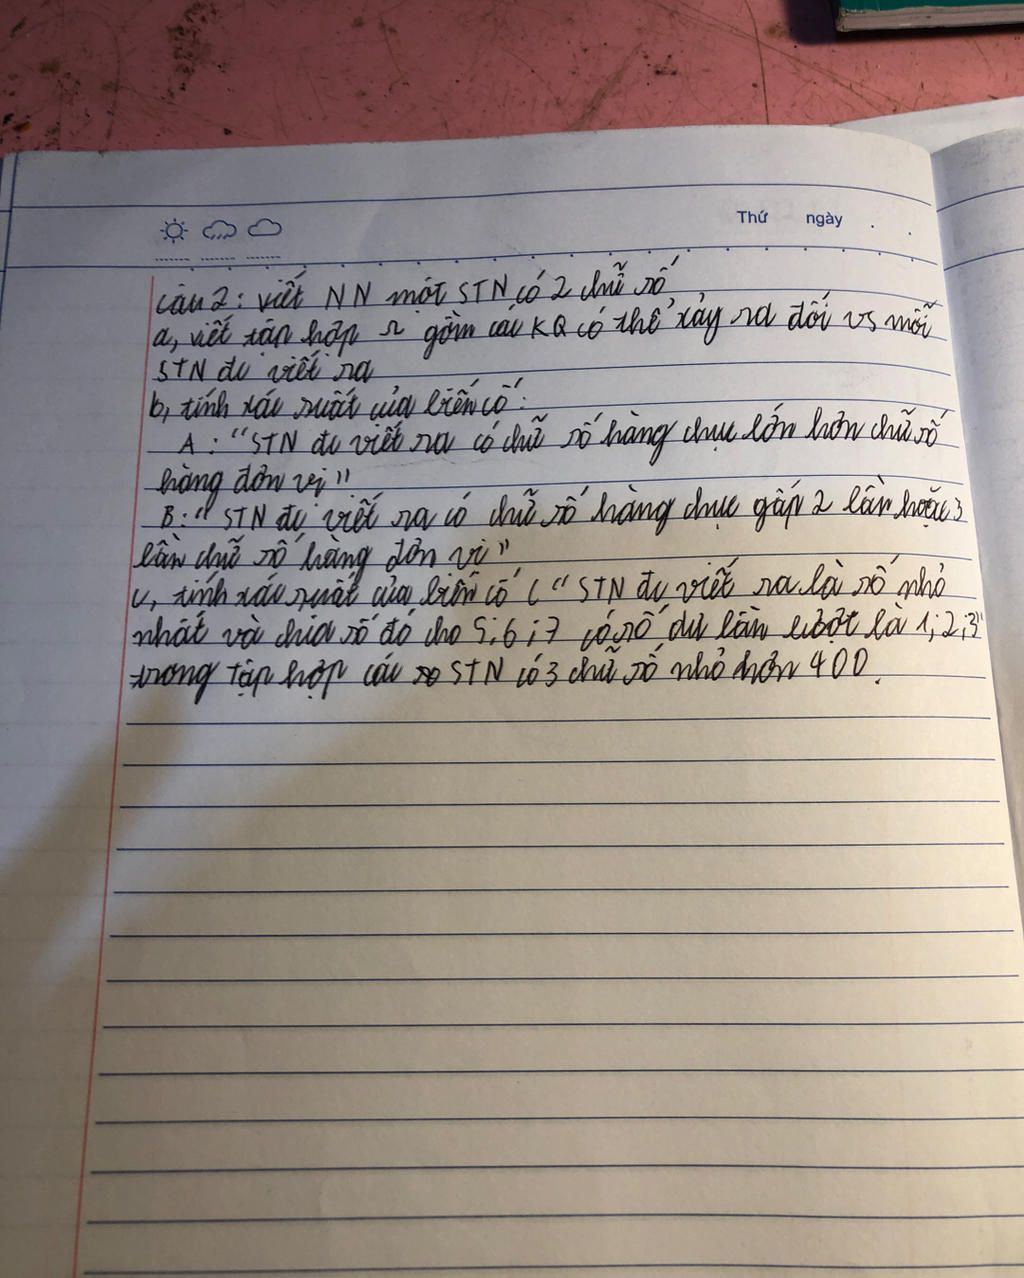 Thứ ngày
Câu 2: viết NN một STN có 2 chữ số
a, viết tập hợp Ω gồm các KQ có thể xảy ra đối vs mỗi
STN đc viết ra
b, tính xác suất của biến cố:
A: "STN đc viết ra có chữ số hàng chục lớn hơn chữ số
hàng đơn vị"
B: "STN đc viết ra có chữ số hàng chục gấp 2 lần hoặc 3
lần chữ số hàng đơn vị"
c, tính xác suất của biến cố C "STN đc viết ra là số nhỏ
nhất và chia số đó cho 5; 6; 7 có số dư lần lượt là 1; 2; 3"
trong tập hợp các STN có 3 chữ số nhỏ hơn 400.